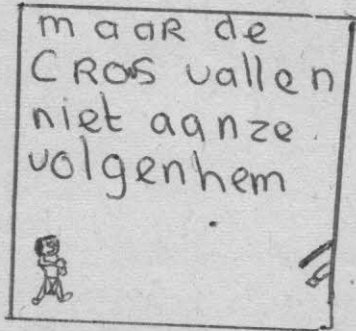 maaR de
CROS vallen
niet aanze
volgenhem